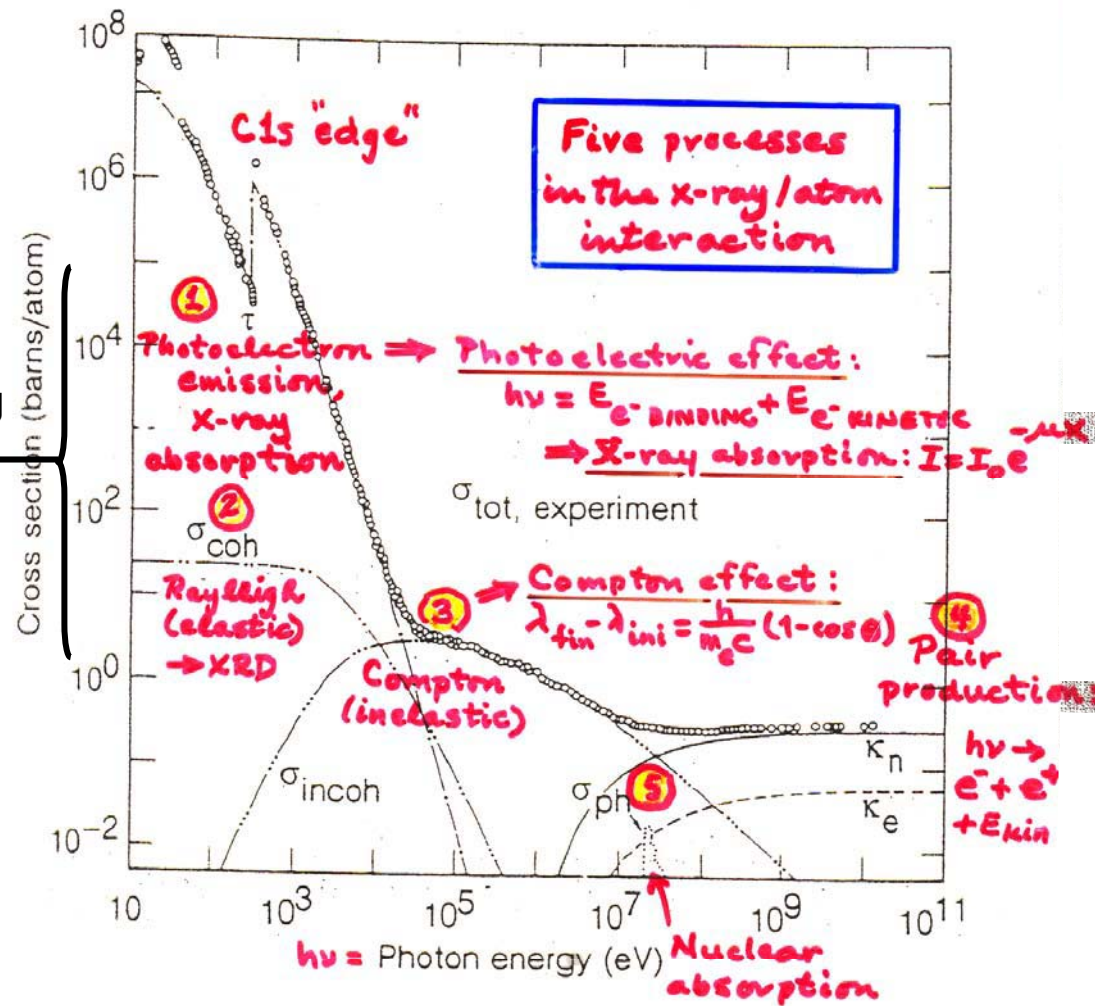 Cross section (barns/atom)
10⁸
10⁶
10⁴
10²
10⁰
10⁻²
C1s "edge"
Five processes
in the x-ray/atom
interaction
1
τ
Photoelectron
emission,
x-ray
absorption
⇒ Photoelectric effect:
hν = E e⁻ BINDING + E e⁻ KINETIC
⇒ X-ray absorption: I = I₀e^-μx
σtot, experiment
2
σcoh
Rayleigh
(elastic)
→ XRD
3
⇒ Compton effect:
λfin - λini = h/mₑc (1-cosθ)
Compton
(inelastic)
4
Pair
production:
hν →
e⁻ + e⁺
+ Ekin
σincoh
σph
5
κn
κe
10
10³
10⁵
10⁷
10⁹
10¹¹
hν = Photon energy (eV)
Nuclear
absorption